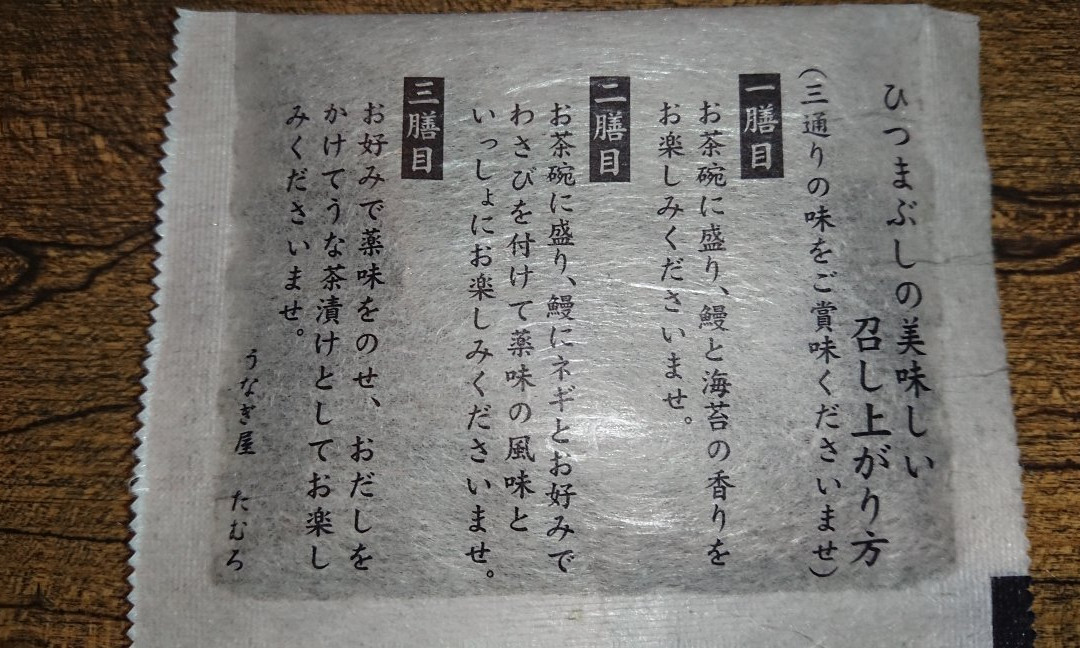 ひつまぶしの美味しい
召し上がり方
(三通りの味をご賞味くださいませ)
一膳目
お茶碗に盛り、鰻と海苔の香りを
お楽しみくださいませ。
二膳目
お茶碗に盛り、鰻にネギとお好みで
わさびを付けて薬味の風味と
いっしょにお楽しみくださいませ。
三膳目
お好みで薬味をのせ、おだしを
かけてうな茶漬けとしてお楽し
みくださいませ。
うなぎ屋 たむろ